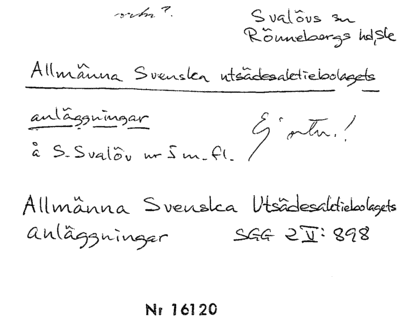 ortn?.
Svalövs sn
Rönnebergs hd, Sk
Allmänna Svenska utsädesaktiebolagets
anläggningar
Ej ortn.!
å S. Svalöv nr 5 m. fl.
Allmänna Svenska Utsädesaktiebolagets
anläggningar SGG 2 V: 898
Nr 16120